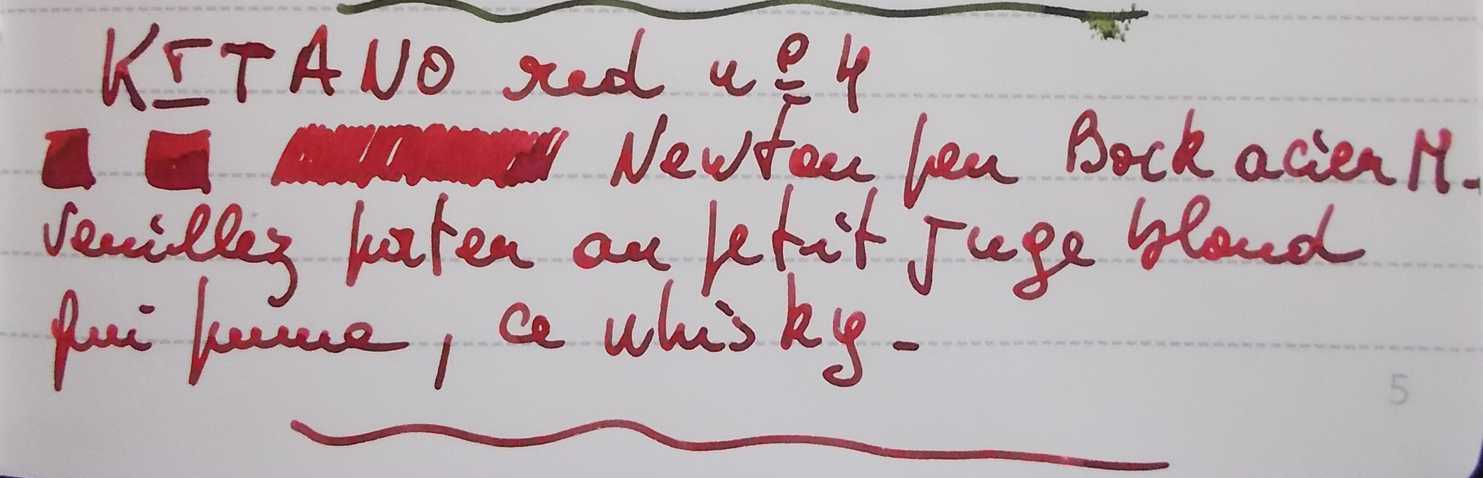 KETANO red nº 4
Newton pen Bock acier M.
Veuillez porter au petit juge blond
qui fume, ce whisky.
5